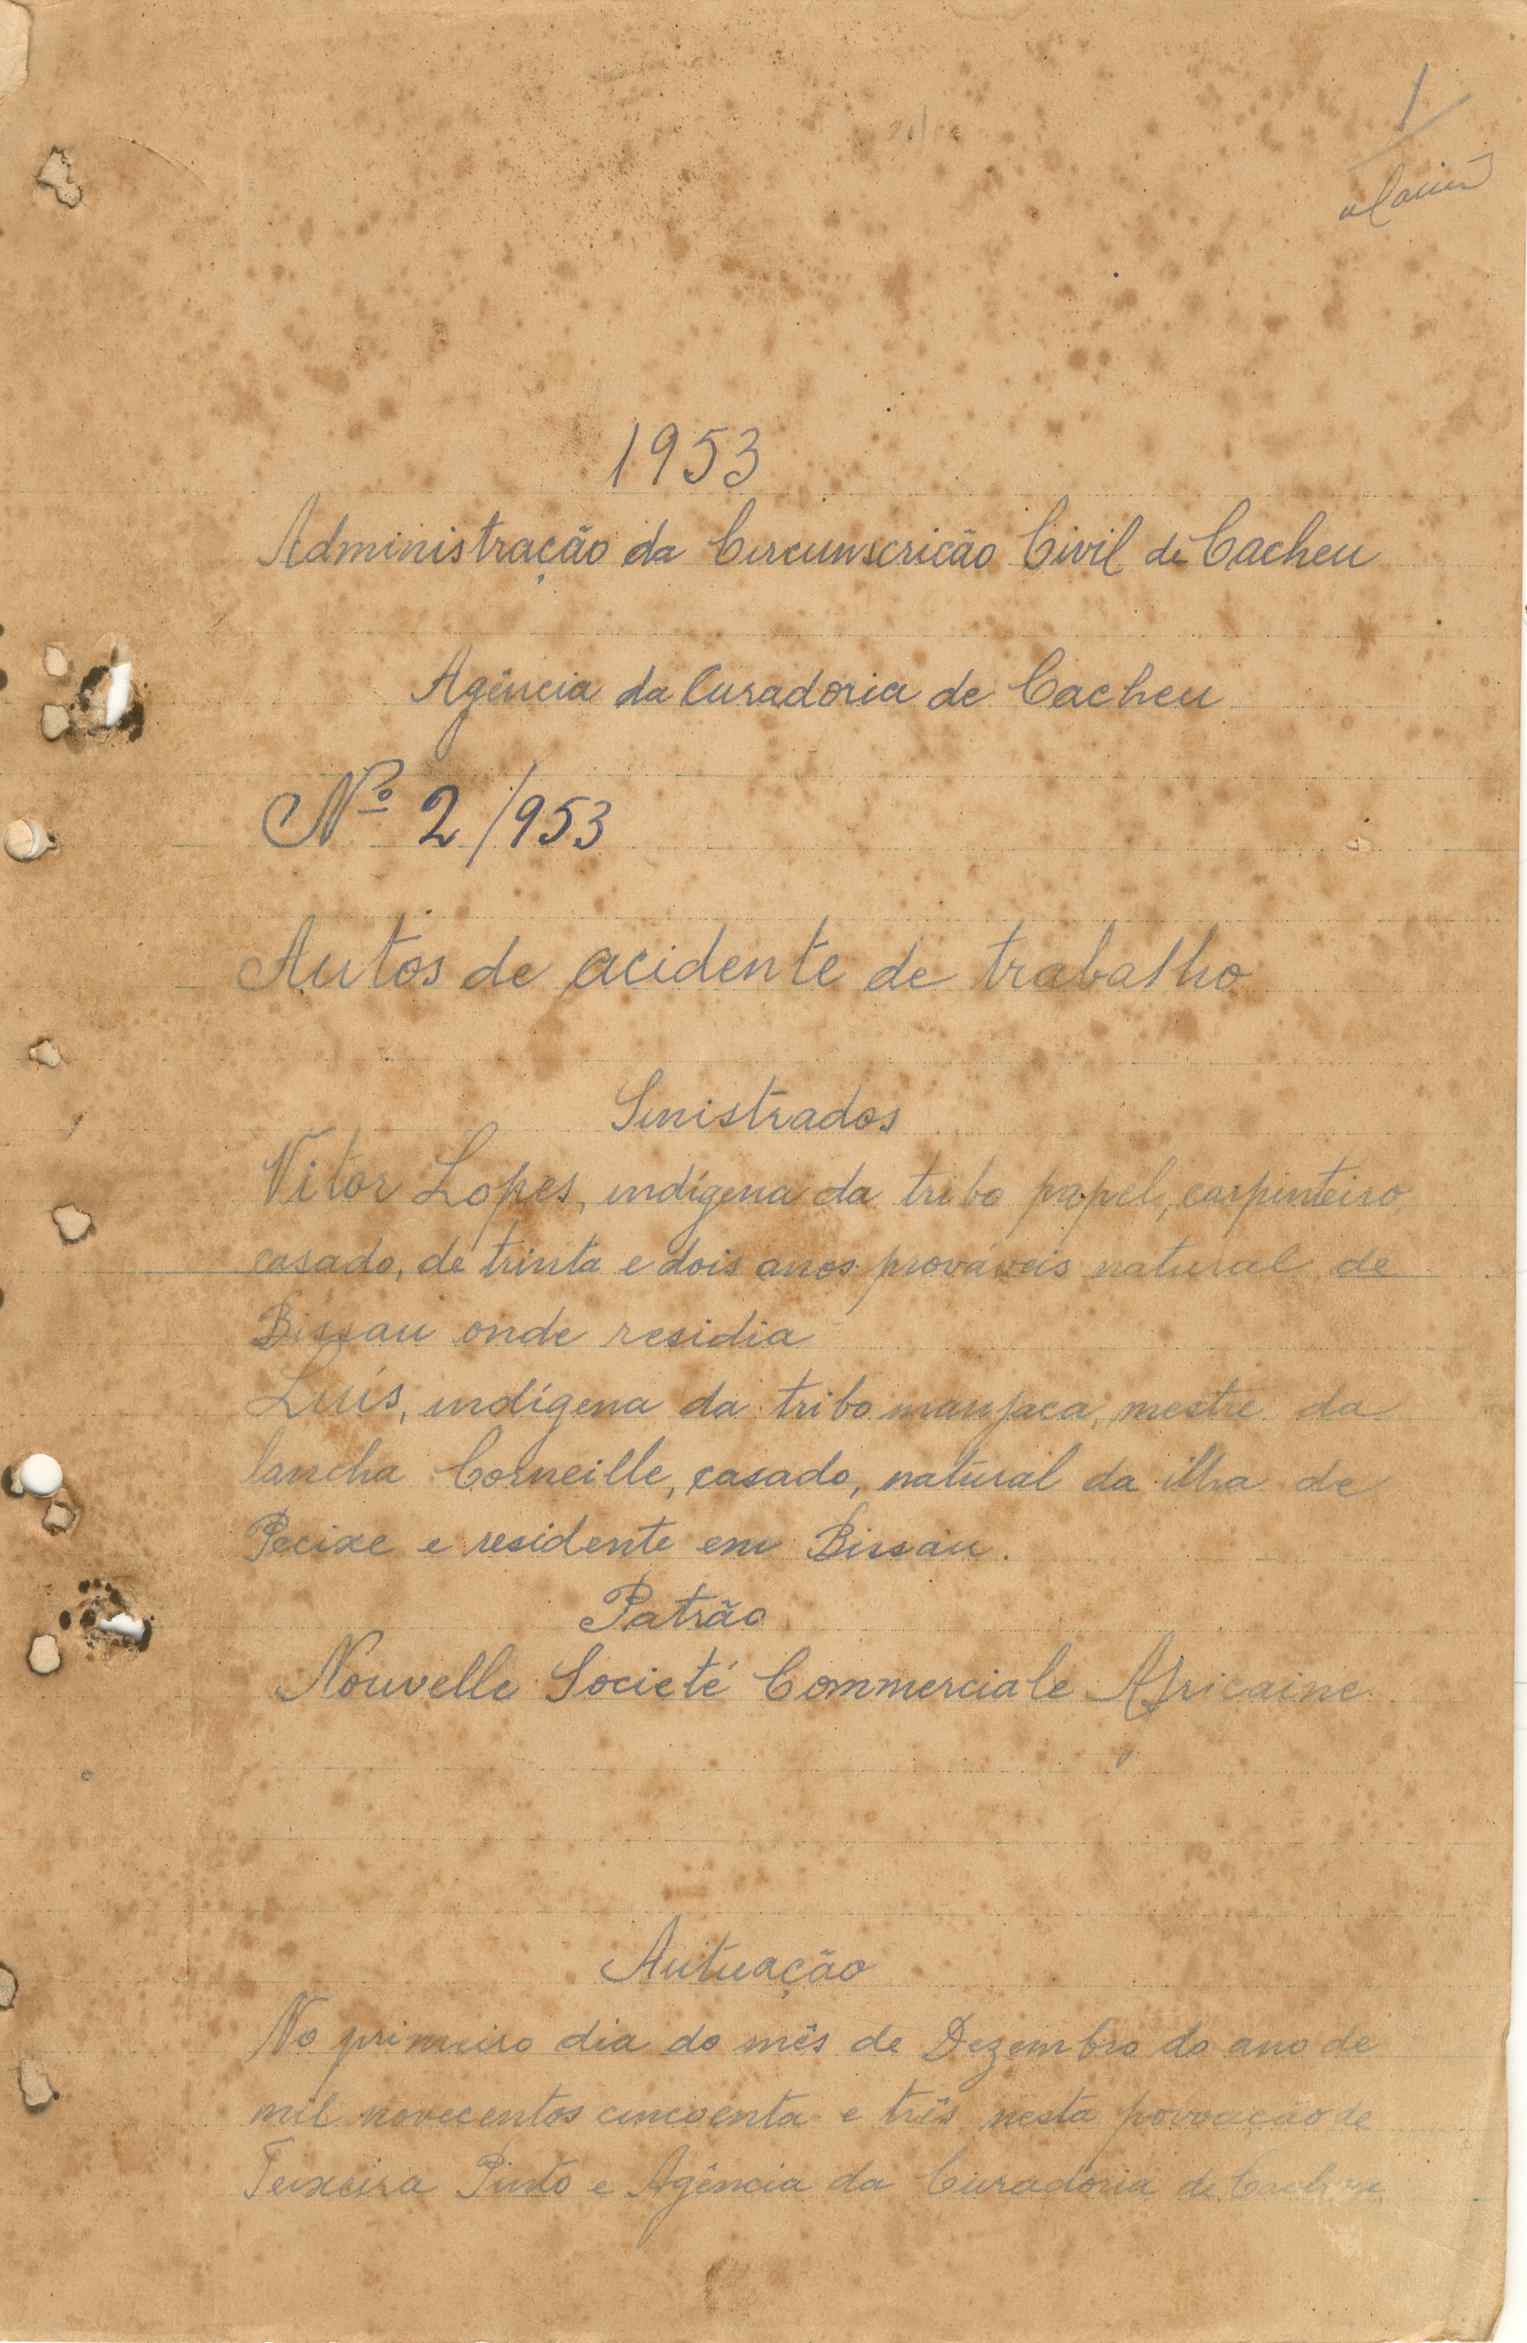 1
1953
Administração da Circunscricão Civil de Cacheu
Agência da Curadoria de Cacheu
Nº 2/953
Autos de acidente de trabalho
Sinistrados
Vitor Lopes, indígena da tribo papel, carpinteiro,
casado, de trinta e dois anos prováveis natural de
Bissau onde residia
Luís, indígena da tribo manjaca, mestre da
lancha Corneille, casado, natural da ilha de
Pecixe e residente em Bissau.
Patrão
Nouvelle Societé Commerciale Africaine
Autuação
No primeiro dia do mês de Dezembro do ano de
mil novecentos cincoenta e três nesta povoação de
Teixeira Pinto e Agência da Curadoria de Cacheu